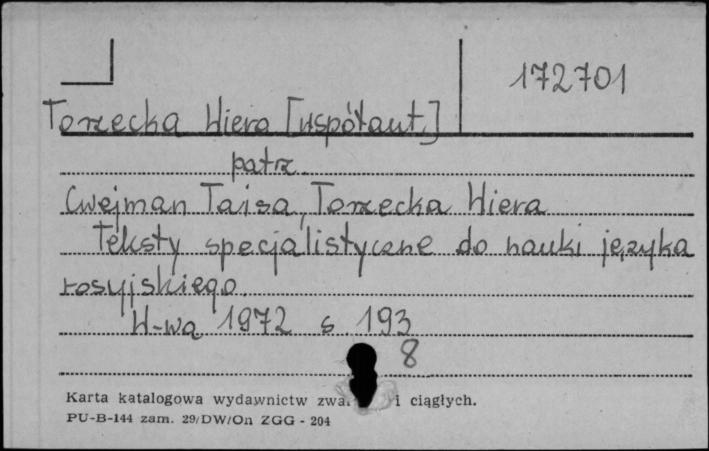 172701
Torzecka Wiera [współaut.]
patrz
Cwejman Taisa, Torzecka Wiera
Teksty specjalistyczne do nauki języka
rosyjskiego.
W-wa 1972 s. 193
8
Karta katalogowa wydawnictw i ciągłych.
PU-B-144 zam. 29/DW/On ZGG - 204